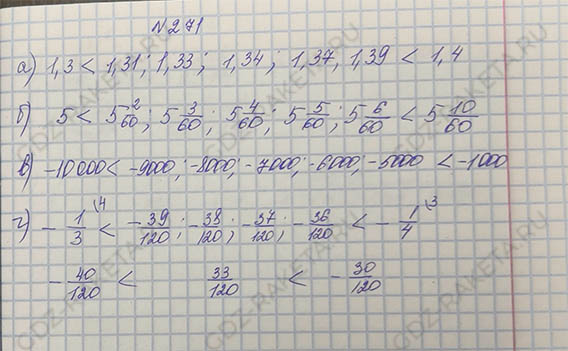 №271
а) 1,3 < 1,31; 1,33; 1,34; 1,37, 1,39 < 1,4
б) 5 < 5 2/60; 5 3/60; 5 4/60; 5 5/60; 5 6/60 < 5 10/60
в) -10000 < -9000; -8000; -7000; -6000; -5000 < -1000
г) - 1/3 (4 < -39/120; -38/120; -37/120; -36/120 < - 1/4 (3
- 40/120 < 33/120 < - 30/120
GDZ-RAKETA.RU